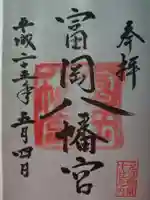 奉拝
富岡八幡宮
平成二十五年五月四日